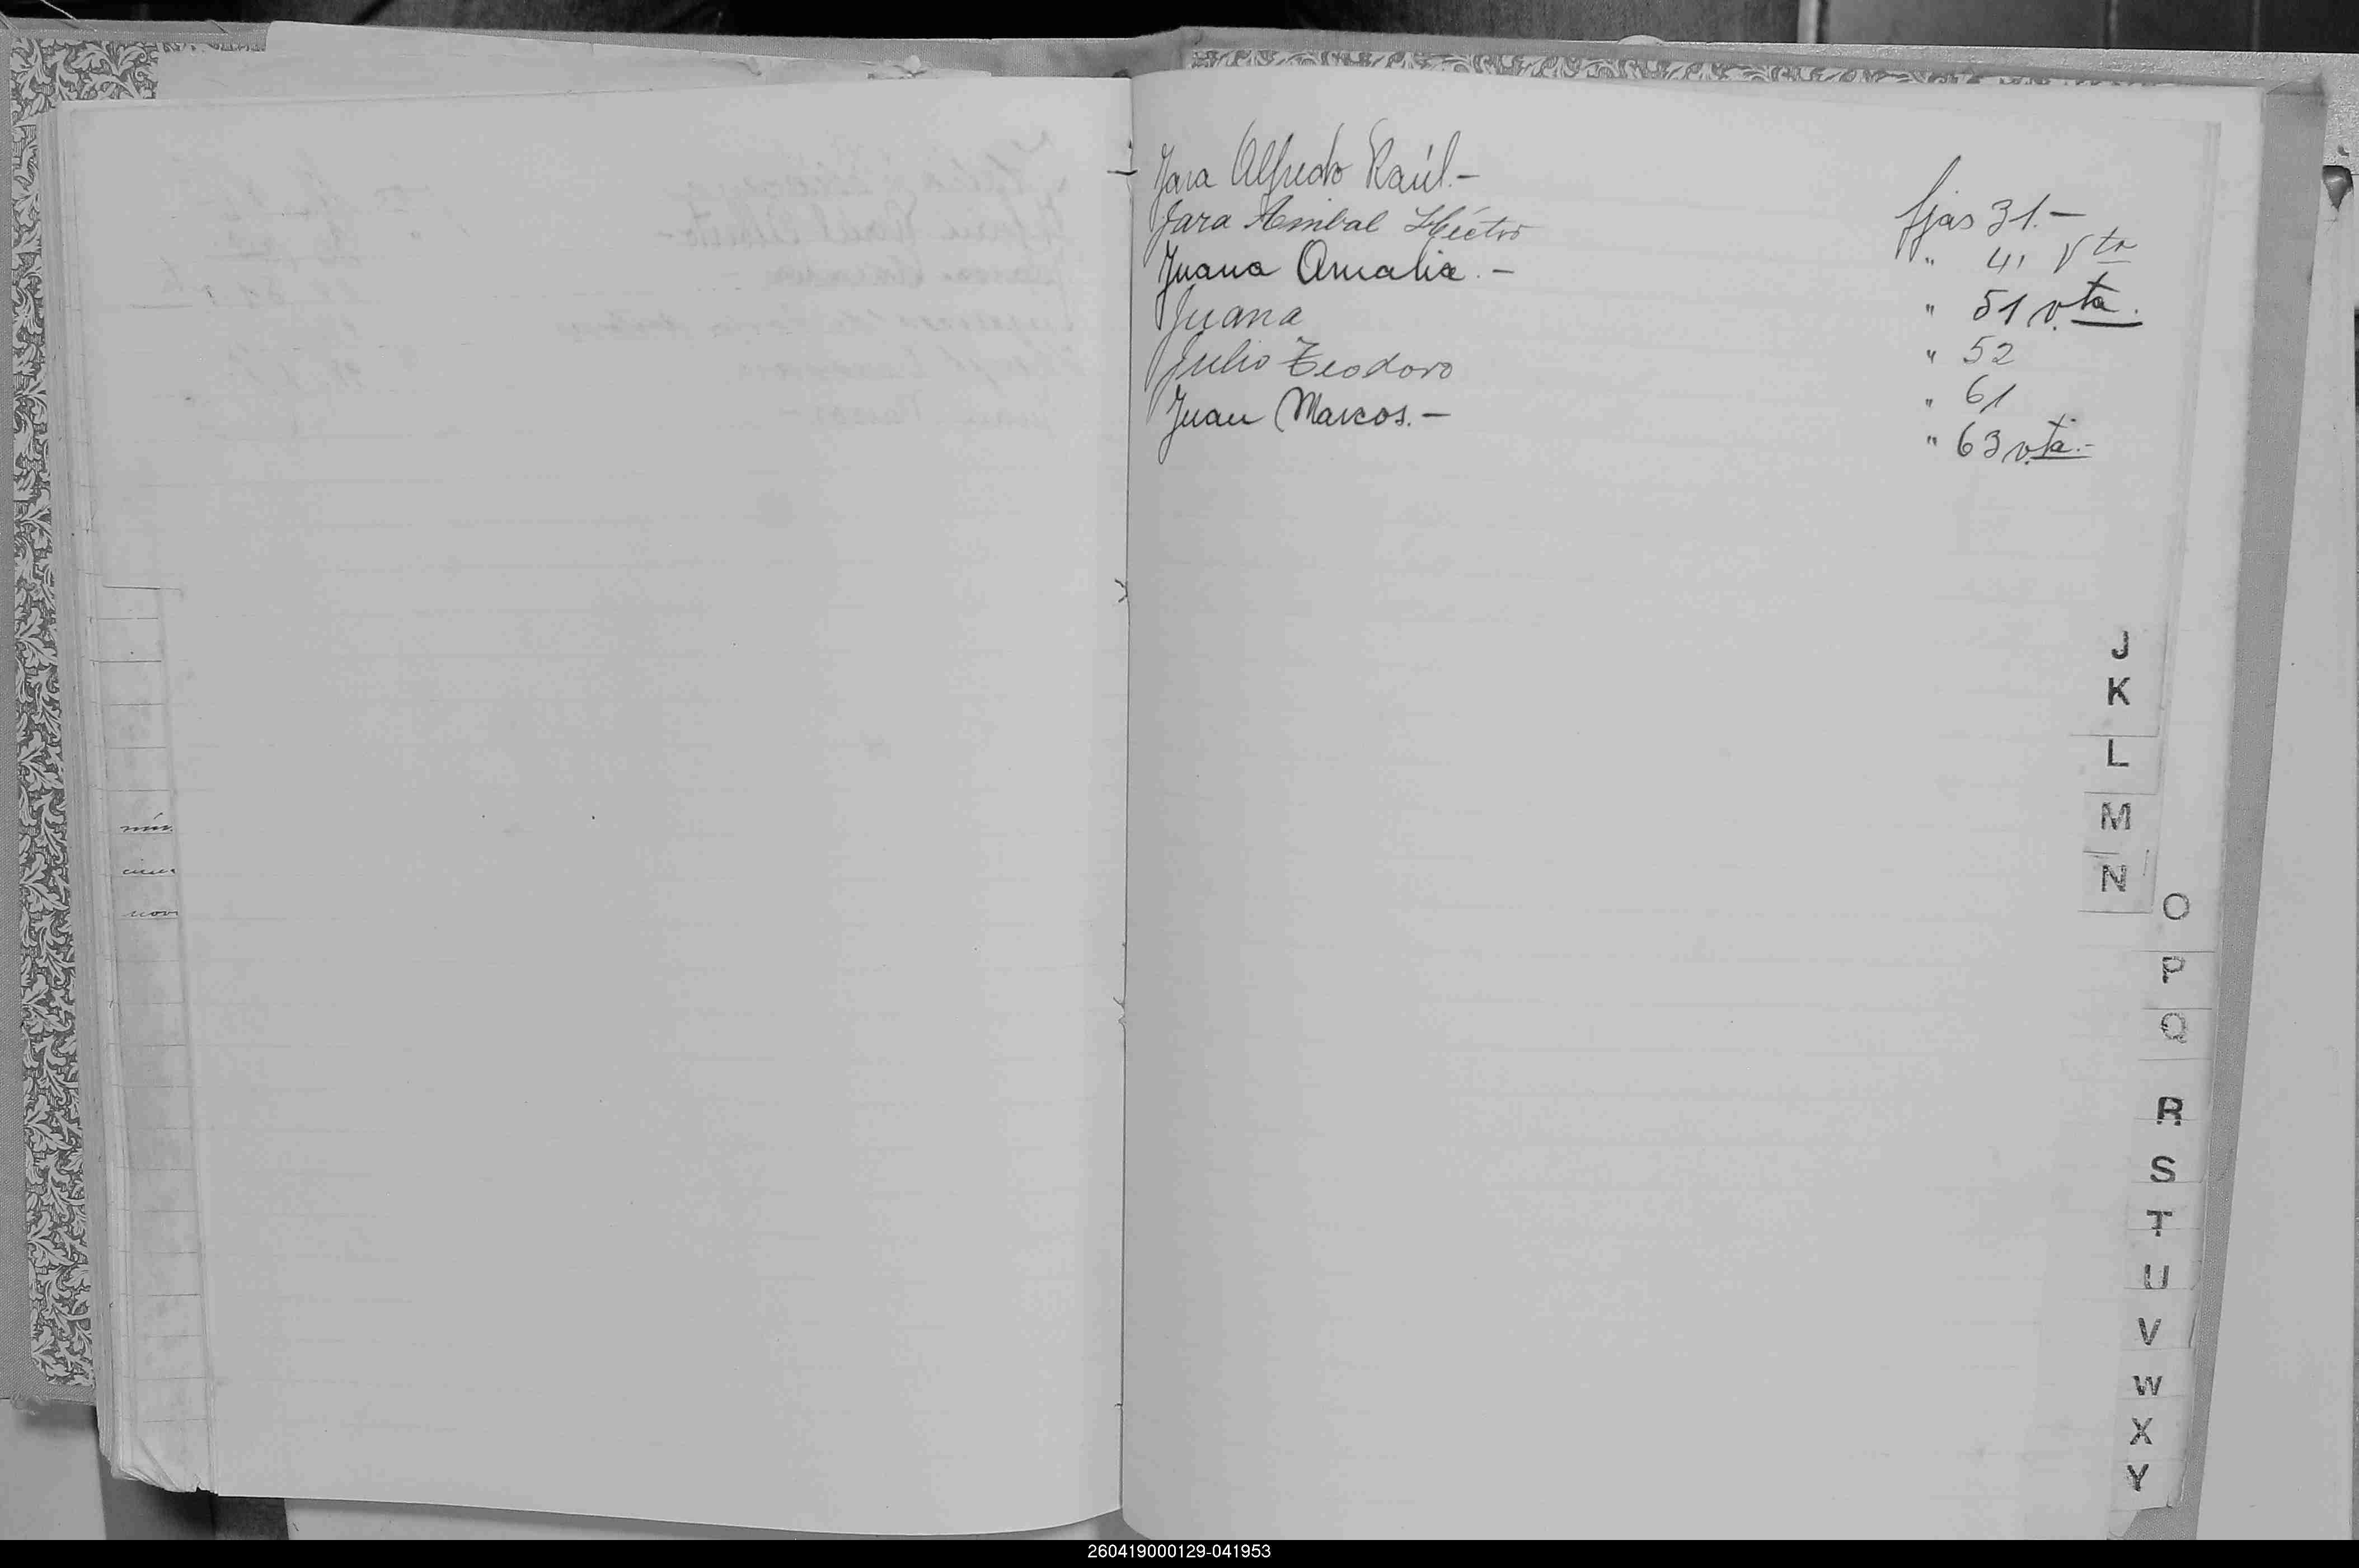 Jara Alfredo Raúl.- fjas 31.-
Jara Anibal Héctor " 41 Vta
Juana Amalia.- " 51 vta.
Juana " 52
Julio Teodoro " 61
Juan Marcos.- " 63 vta.-
J
K
L
M
N
O
P
Q
R
S
T
U
V
W
X
Y
260419000129-041953